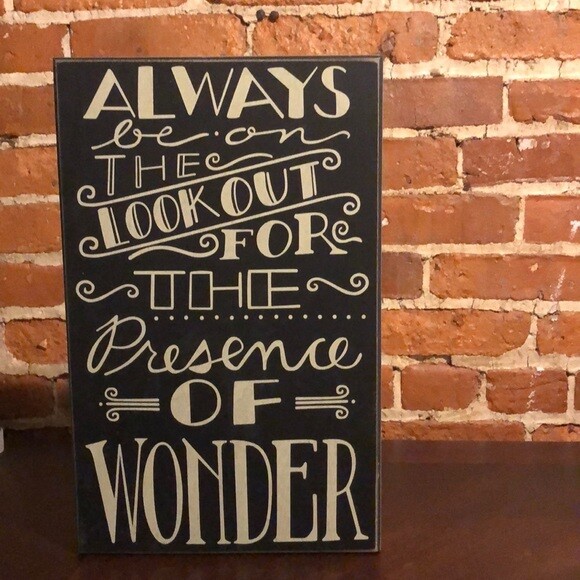 ALWAYS
be·on
THE
LOOK OUT
FOR
THE
Presence
OF
WONDER